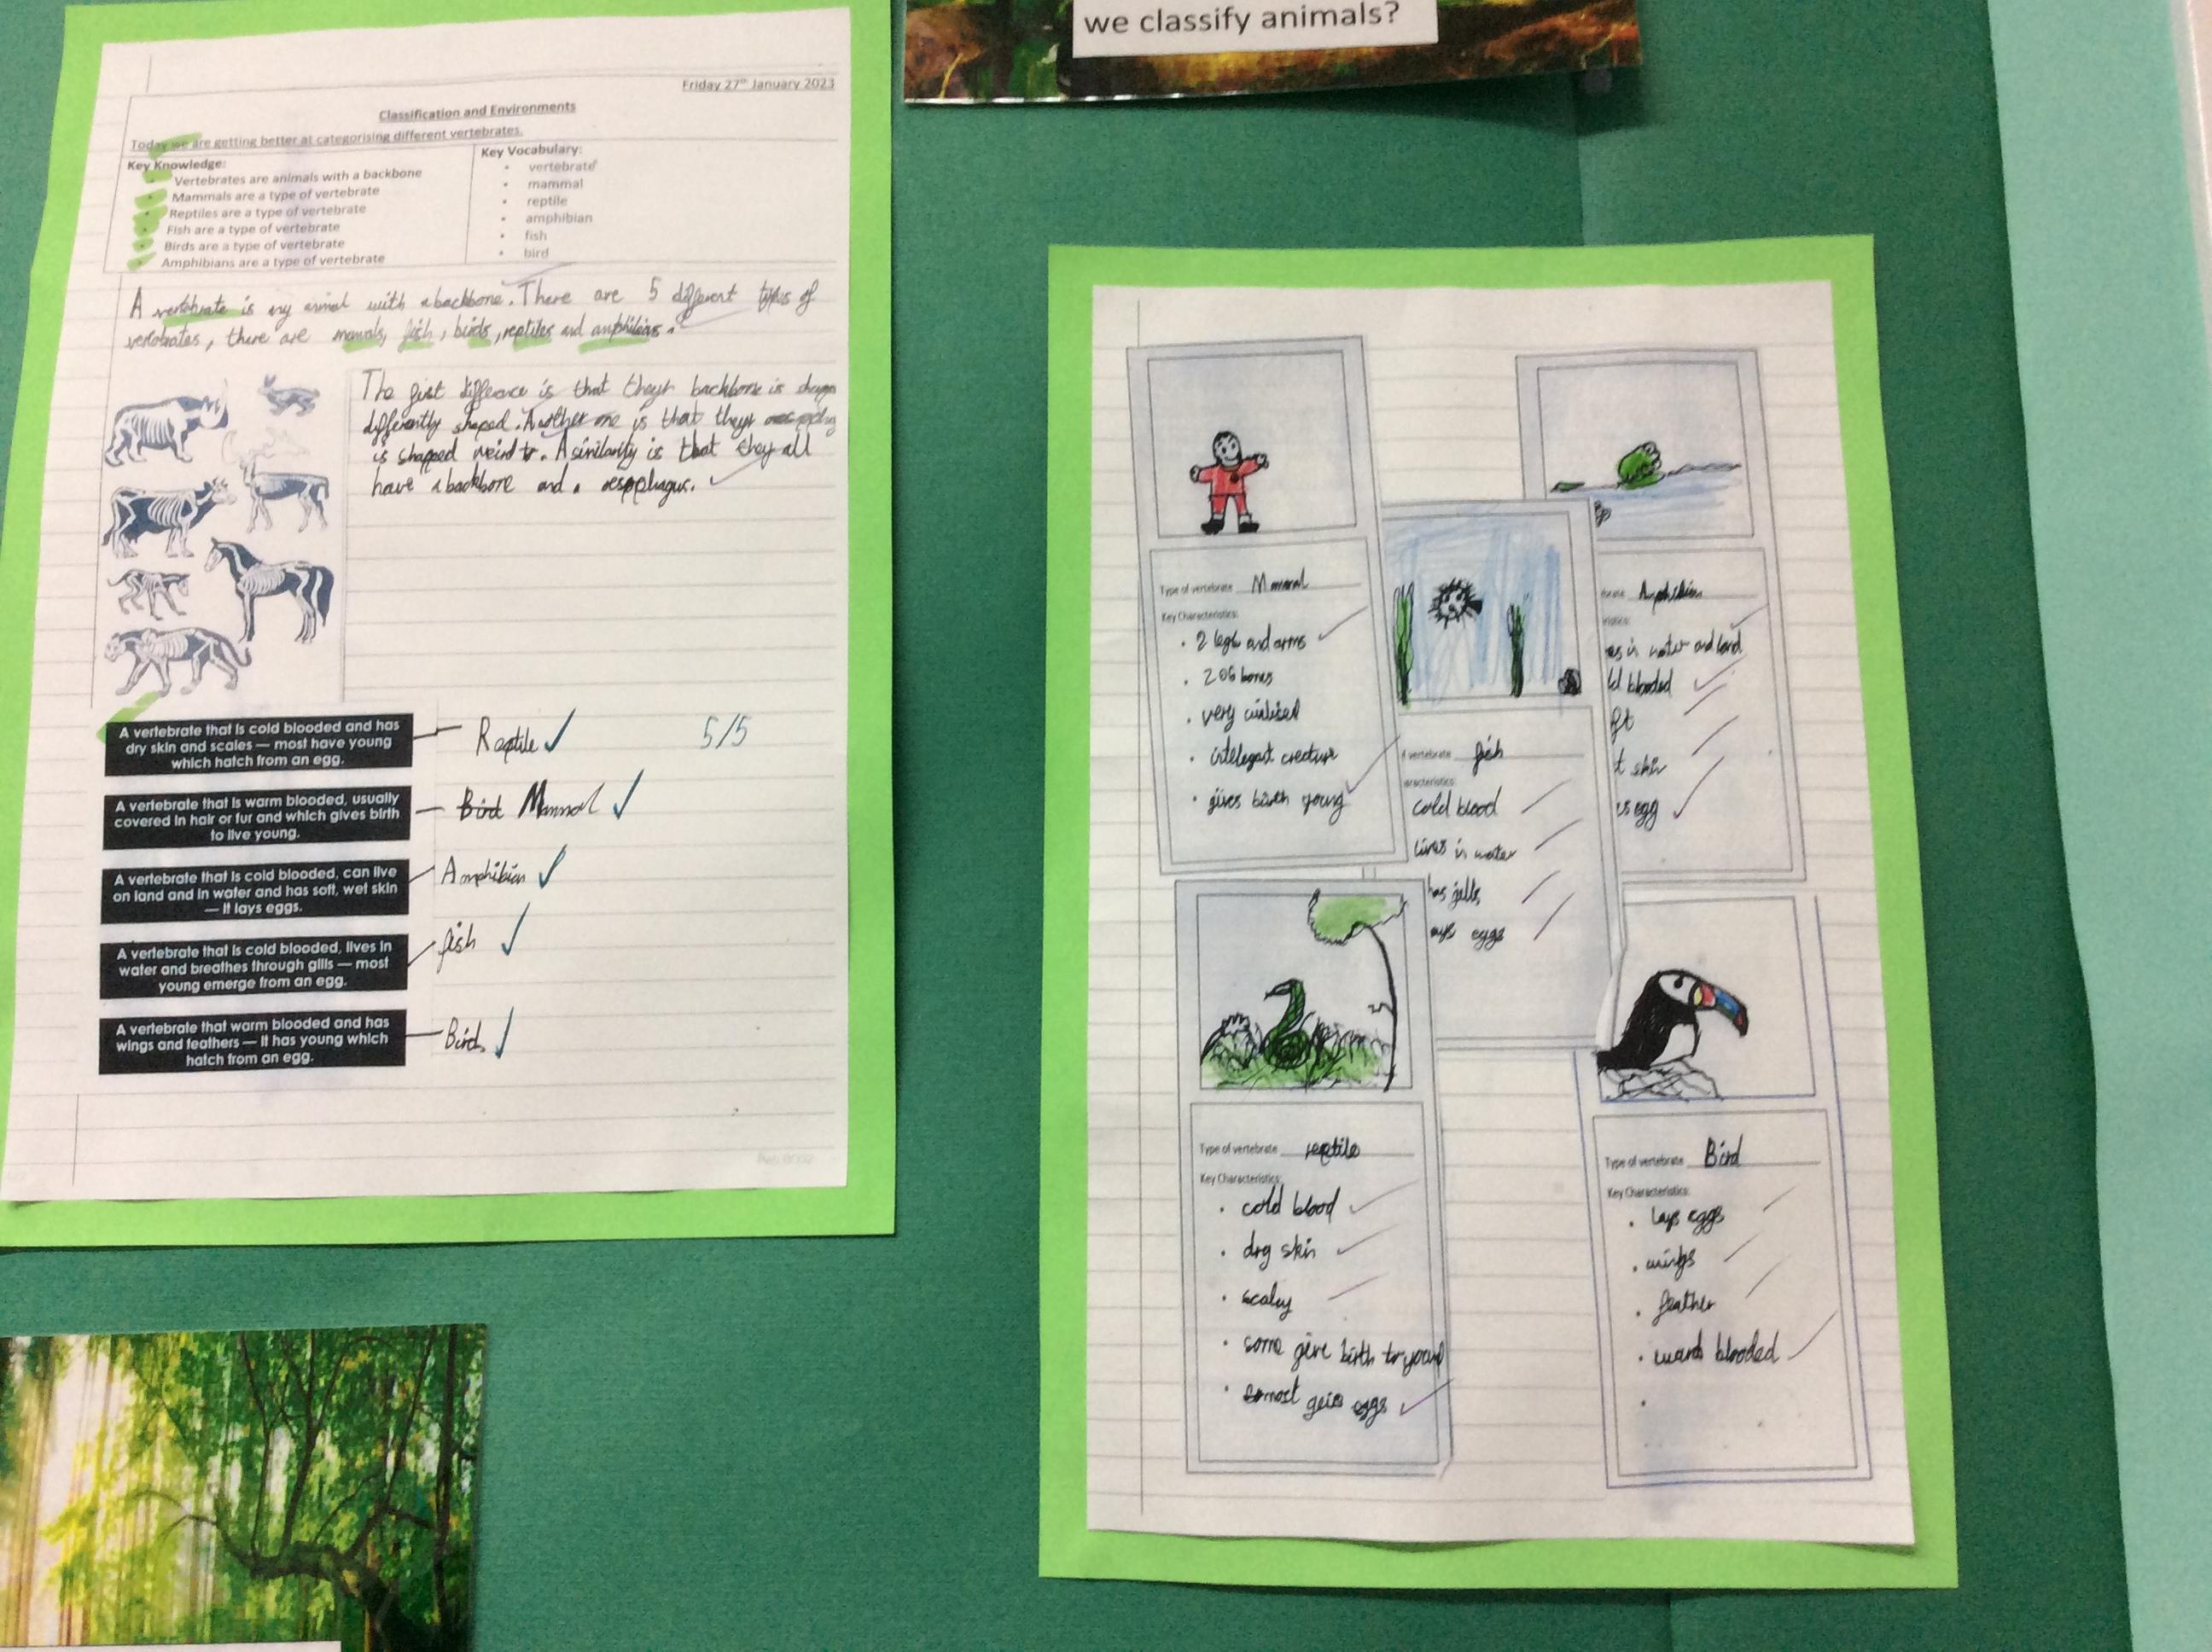 we classify animals?
Friday 27th January 2023
Classification and Environments
Today we are getting better at categorising different vertebrates.
Key Knowledge:
Vertebrates are animals with a backbone
Mammals are a type of vertebrate
Reptiles are a type of vertebrate
Fish are a type of vertebrate
Birds are a type of vertebrate
Amphibians are a type of vertebrate
Key Vocabulary:
vertebrate
mammal
reptile
amphibian
fish
bird
A vertebrate is any animal with a backbone. There are 5 different types of
vertebrates, there are mamals, fish, birds, reptiles and
The first difference is that theyr backbone is
differently shaped. Another one is that theyr
is shapped weird to. A similarity is that they all
have a backbone and a oesophagus.
A vertebrate that is cold blooded and has
dry skin and scales — most have young
which hatch from an egg.
Reptile
5/5
A vertebrate that is warm blooded, usually
covered in hair or fur and which gives birth
to live young.
Bird Mammal
A vertebrate that is cold blooded, can live
on land and in water and has soft, wet skin
— it lays eggs.
Amphibian
A vertebrate that is cold blooded, lives in
water and breathes through gills — most
young emerge from an egg.
fish
A vertebrate that warm blooded and has
wings and feathers — it has young which
hatch from an egg.
Bird
Type of vertebrate Mammal
Key Characteristics:
2 legs and arms
206 bones
very
creature
gives birth young
vertebrate fish
aracteristics:
cold blood
lives in water
has gills
ays eggs
brate Amphibian
ristics:
es in water and land
ld blooded
ft
t skin
s egg
Type of vertebrate reptile
Key Characteristics:
cold blood
dry skin
scaley
some give birth to young
most eggs
Type of vertebrate Bird
Key Characteristics:
lays eggs
wings
feather
warm blooded